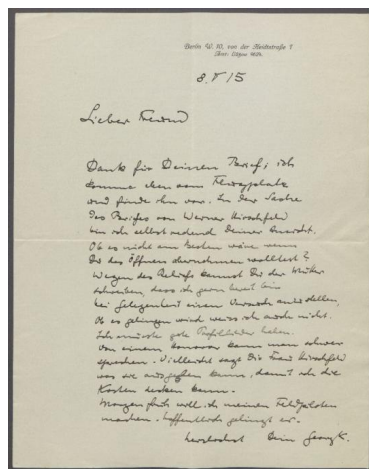 Berlin W. 10, von der Heydtstraße 7
8. V 15
Lieber Freund
Dank für Deinen Brief; ich
komme eben vom Flugplatz
und finde ihn vor. In der Sache
des Briefes von Werner Hirschfeld
bin ich selbstredend Deiner Ansicht.
Ob es nicht am besten wäre wenn
Du das Öffnen übernehmen wolltest?
Wegen des Reliefs kannst Du der Mutter
schreiben, dass ich gern bereit bin
bei Gelegenheit einen Versuch anzustellen,
Ob es gelingen wird weiss ich auch nicht.
Ich müsste gute Profilbilder haben.
Von einem Honorar kann man schwer
sprechen. Vielleicht sagt Dir Frau Hirschfeld
was sie ausgeben kann, damit ich die
Kosten decken kann.
Morgen früh will ich meinen Feldpiloten
machen. Hoffentlich gelingt er.
herzlichst Dein Georg K.